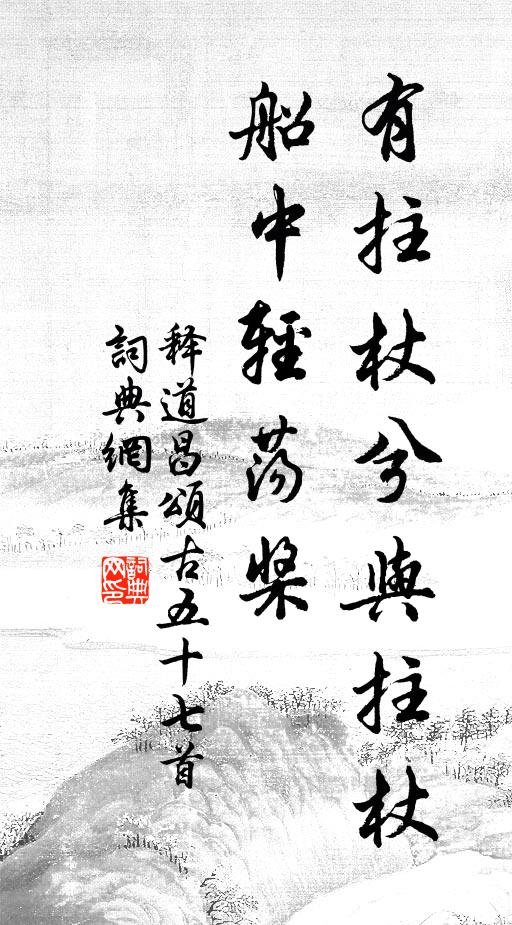 有拄杖兮與拄杖
船中輕荡槳
释道昌頌古五十七首
詞典網集
詞典網印